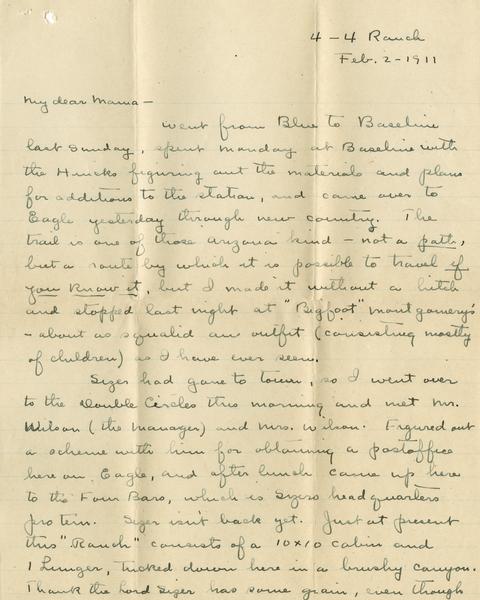 4-4 Ranch
Feb. 2-1911
My dear Mama—
Went from Blue to Baseline
last Sunday, spent Monday at Baseline with
the Hucks figuring out the materials and plans
for additions to the station, and came over to
Eagle yesterday through new country. The
trail is one of those Arizona kind – not a path,
but a route by which it is possible to travel if
you know it, but I made it without a hitch
and stopped last night at "Bigfoot" Montgomery's
– about as squalid an outfit (consisting mostly
of children) as I have ever seen.
Sizer had gone to town, so I went over
to the Double Circles this morning and met Mr.
Wilson (the Manager) and Mrs. Wilson. Figured out
a scheme with him for obtaining a postoffice
here on Eagle, and after lunch came up here
to the Four Bars, which is Sizers headquarters
pro tem. Sizer isn't back yet. Just at present
this "Ranch" consists of a 10x10 cabin and
1 Limger, tucked down here in a brushy canyon.
Thank the Lord Sizer has some grain, even though